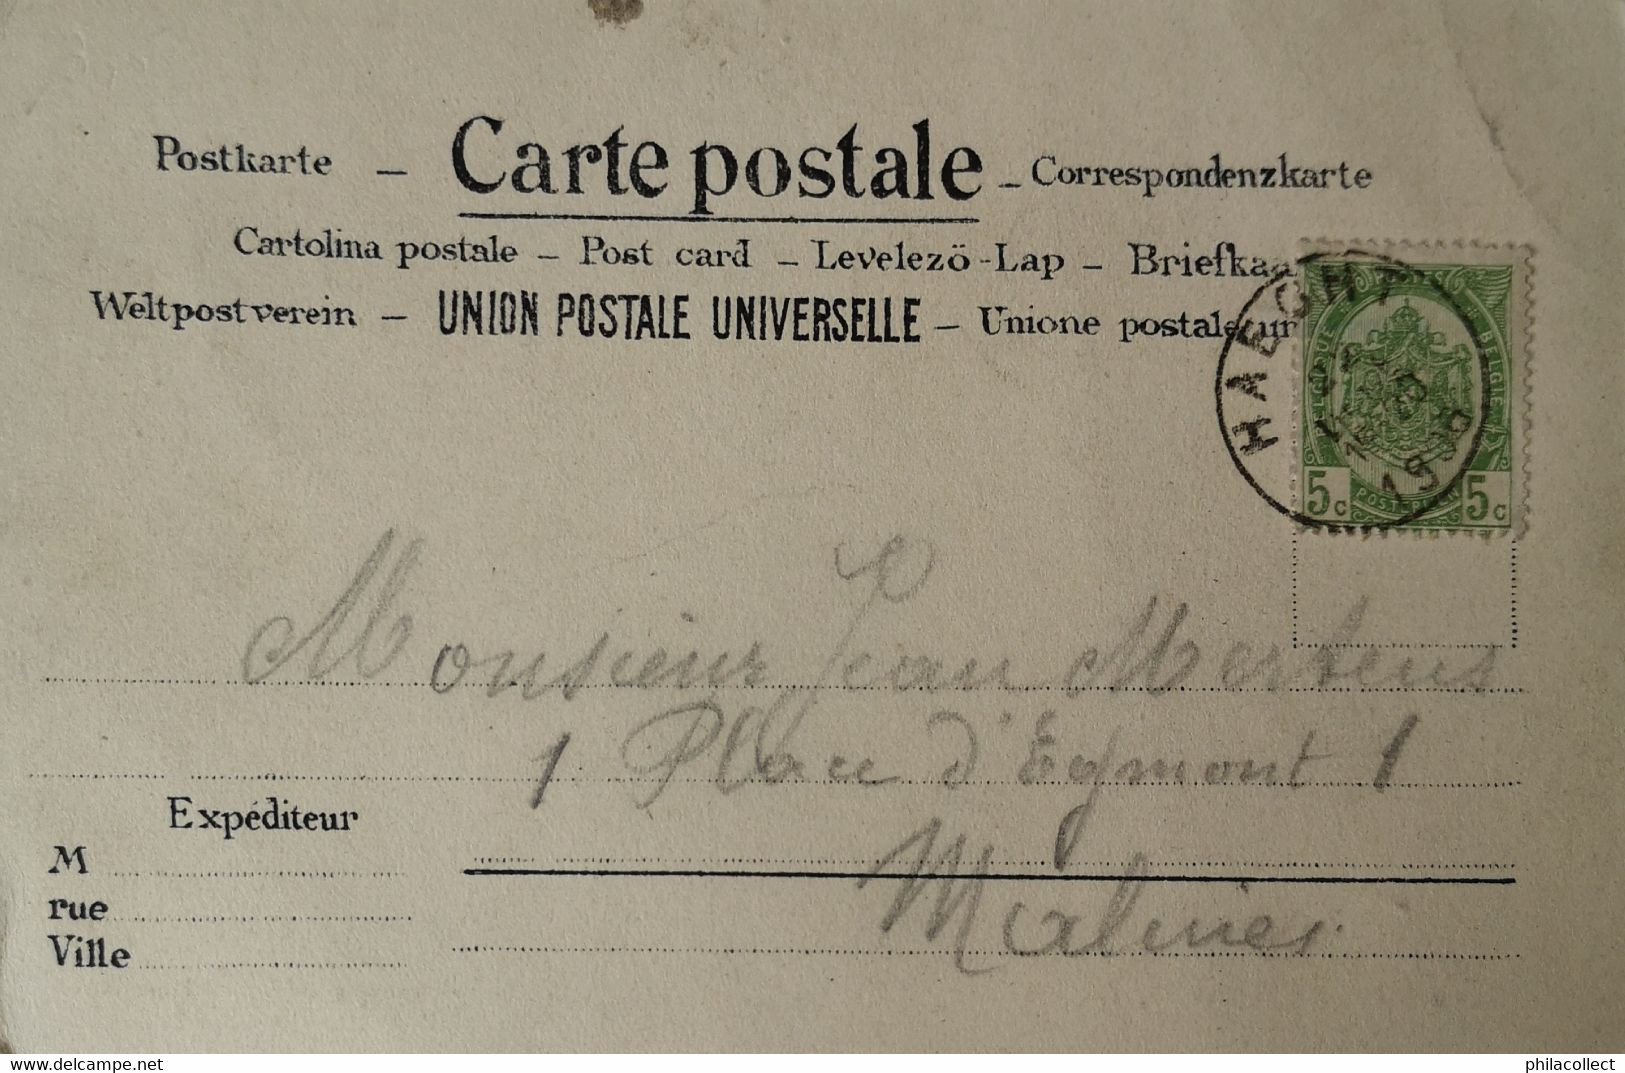 Postkarte – Carte postale – Correspondenzkarte
Cartolina postale – Post card – Levelezö-Lap – Briefkaa
Weltpostverein – UNION POSTALE UNIVERSELLE – Unione postale un
HAECHT
BELGIQUE BELGIE
5c 5c
Monsieur Jean Mertens
1 Place d'Egmont 1
Malines.
Expéditeur
M
rue
Ville
philacollect